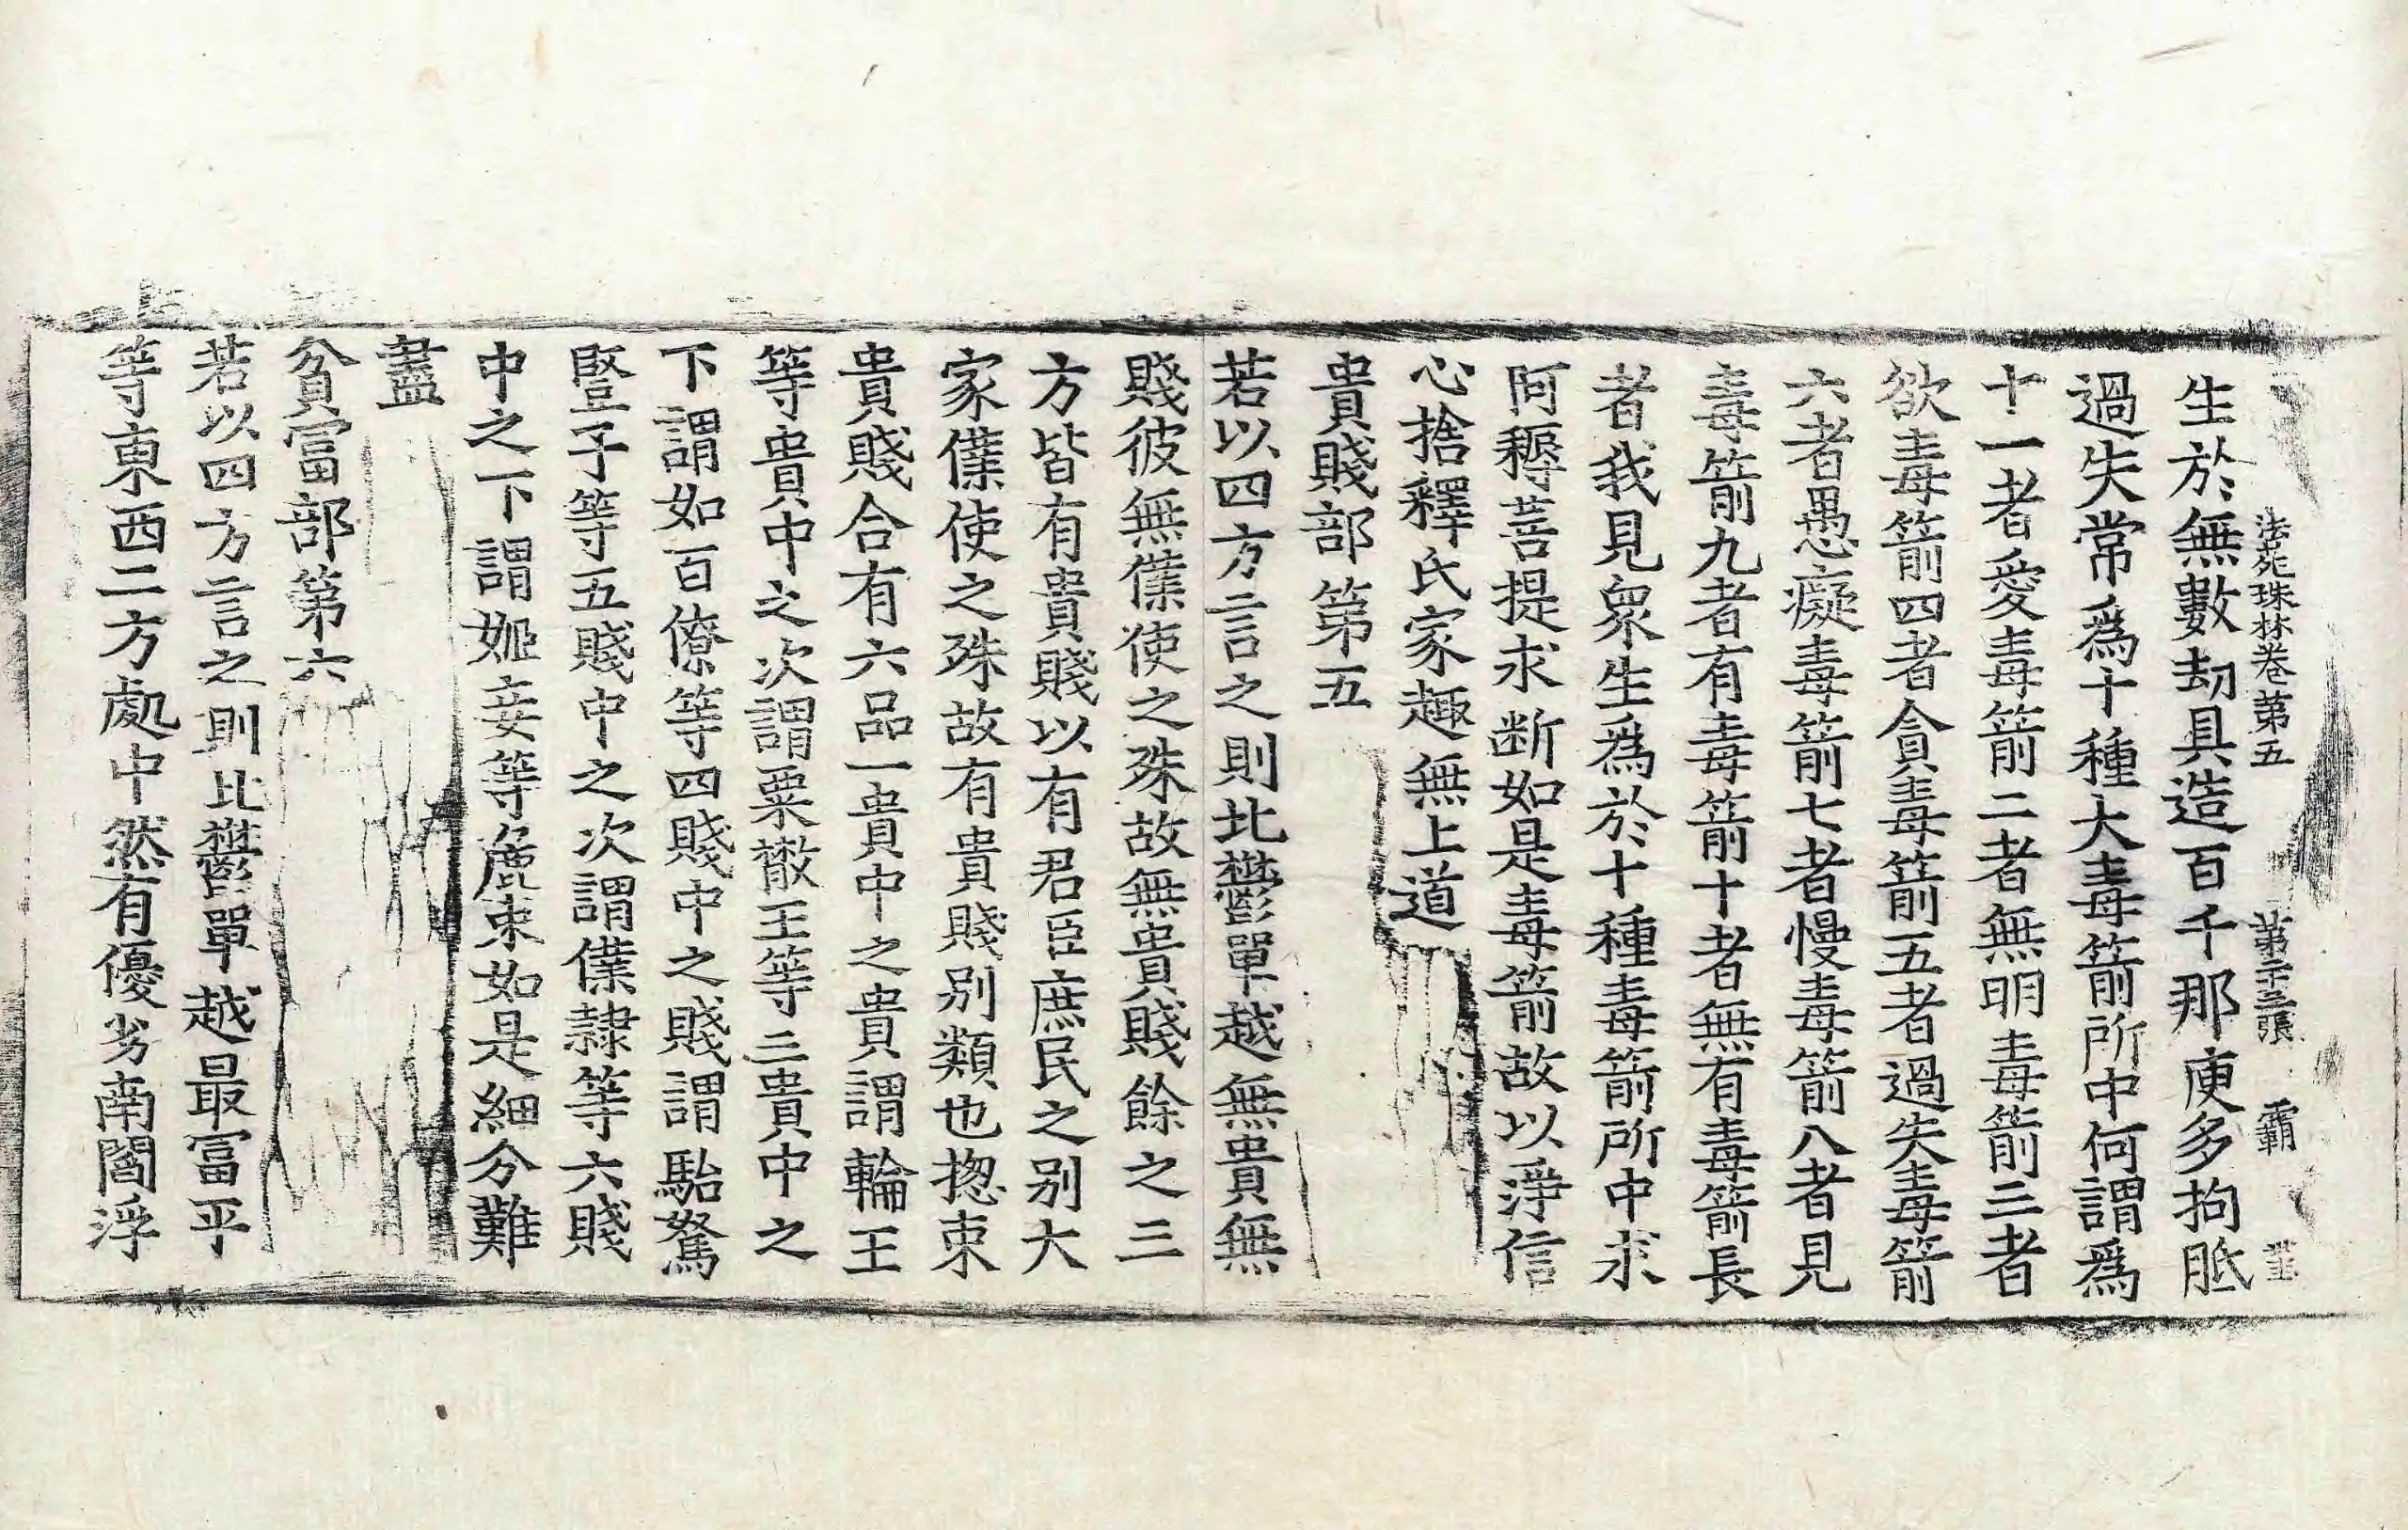 法苑珠林卷第五 第二十三張 霸
生於無數劫具造百千那庾多拘胝
過失常爲十種大毒箭所中何謂爲
十一者愛毒箭二者無明毒箭三者
欲毒箭四者貪毒箭五者過失毒箭
六者愚癡毒箭七者慢毒箭八者見
毒箭九者有毒箭十者無有毒箭長
者我見衆生爲於十種毒箭所中求
阿耨菩提求断如是毒箭故以淨信
心捨釋氏家趣無上道
貴賤部第五
若以四方言之則北欝單越無貴無
賤彼無僕使之殊故無貴賤餘之三
方皆有貴賤以有君臣庶民之别大
家僕使之殊故有貴賤别類也揔束
貴賤合有六品一貴中之貴謂輪王
等貴中之次謂粟散王等三貴中之
下謂如百僚等四賤中之賤謂駘駑
竪子等五賤中之次謂僕隷等六賤
中之下謂姬妾等麁束如是細分難
盡
貧富部第六
若以四方言之則北欝單越最富平
等東西二方處中然有優劣南閻浮